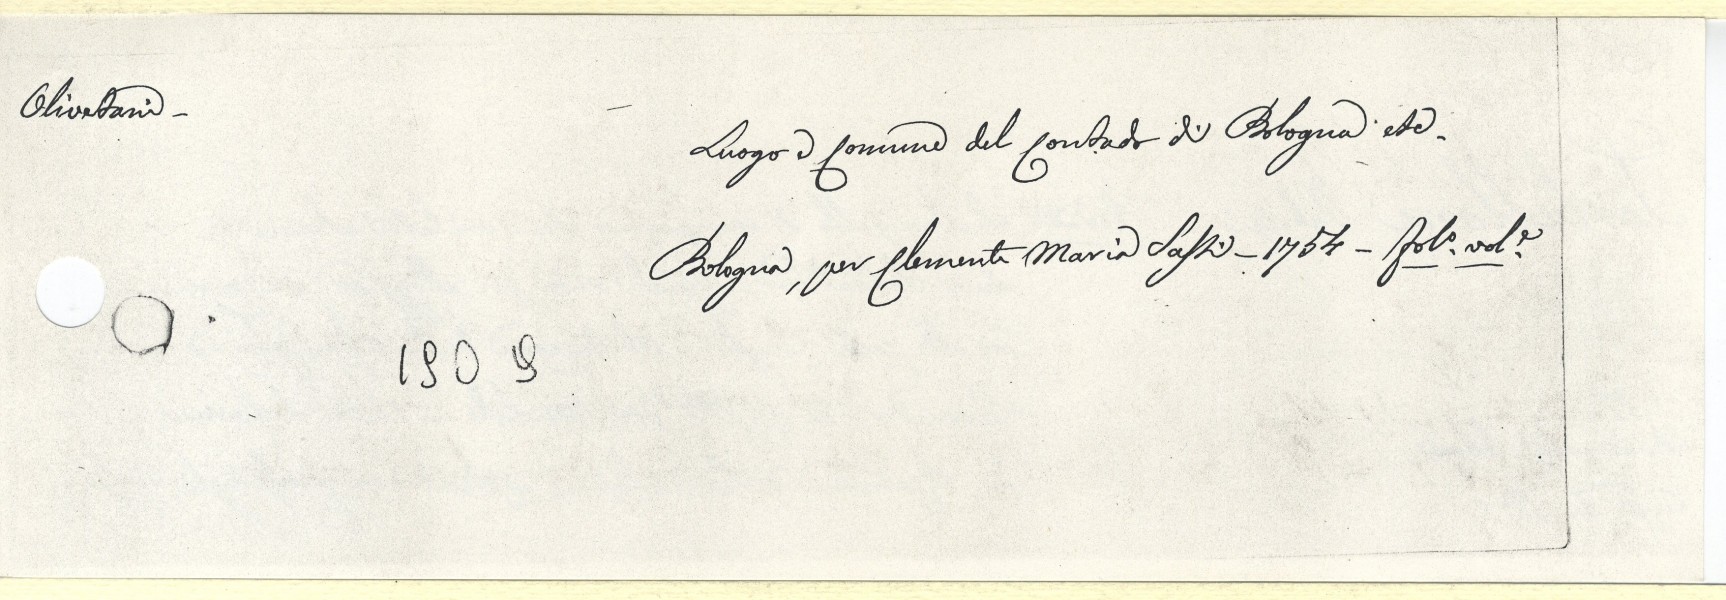 Olivetani -
Luogo e Comune del Contado di Bologna etc.
Bologna, per Clemente Maria Sassi - 1754 - fol.º vol.e
1909